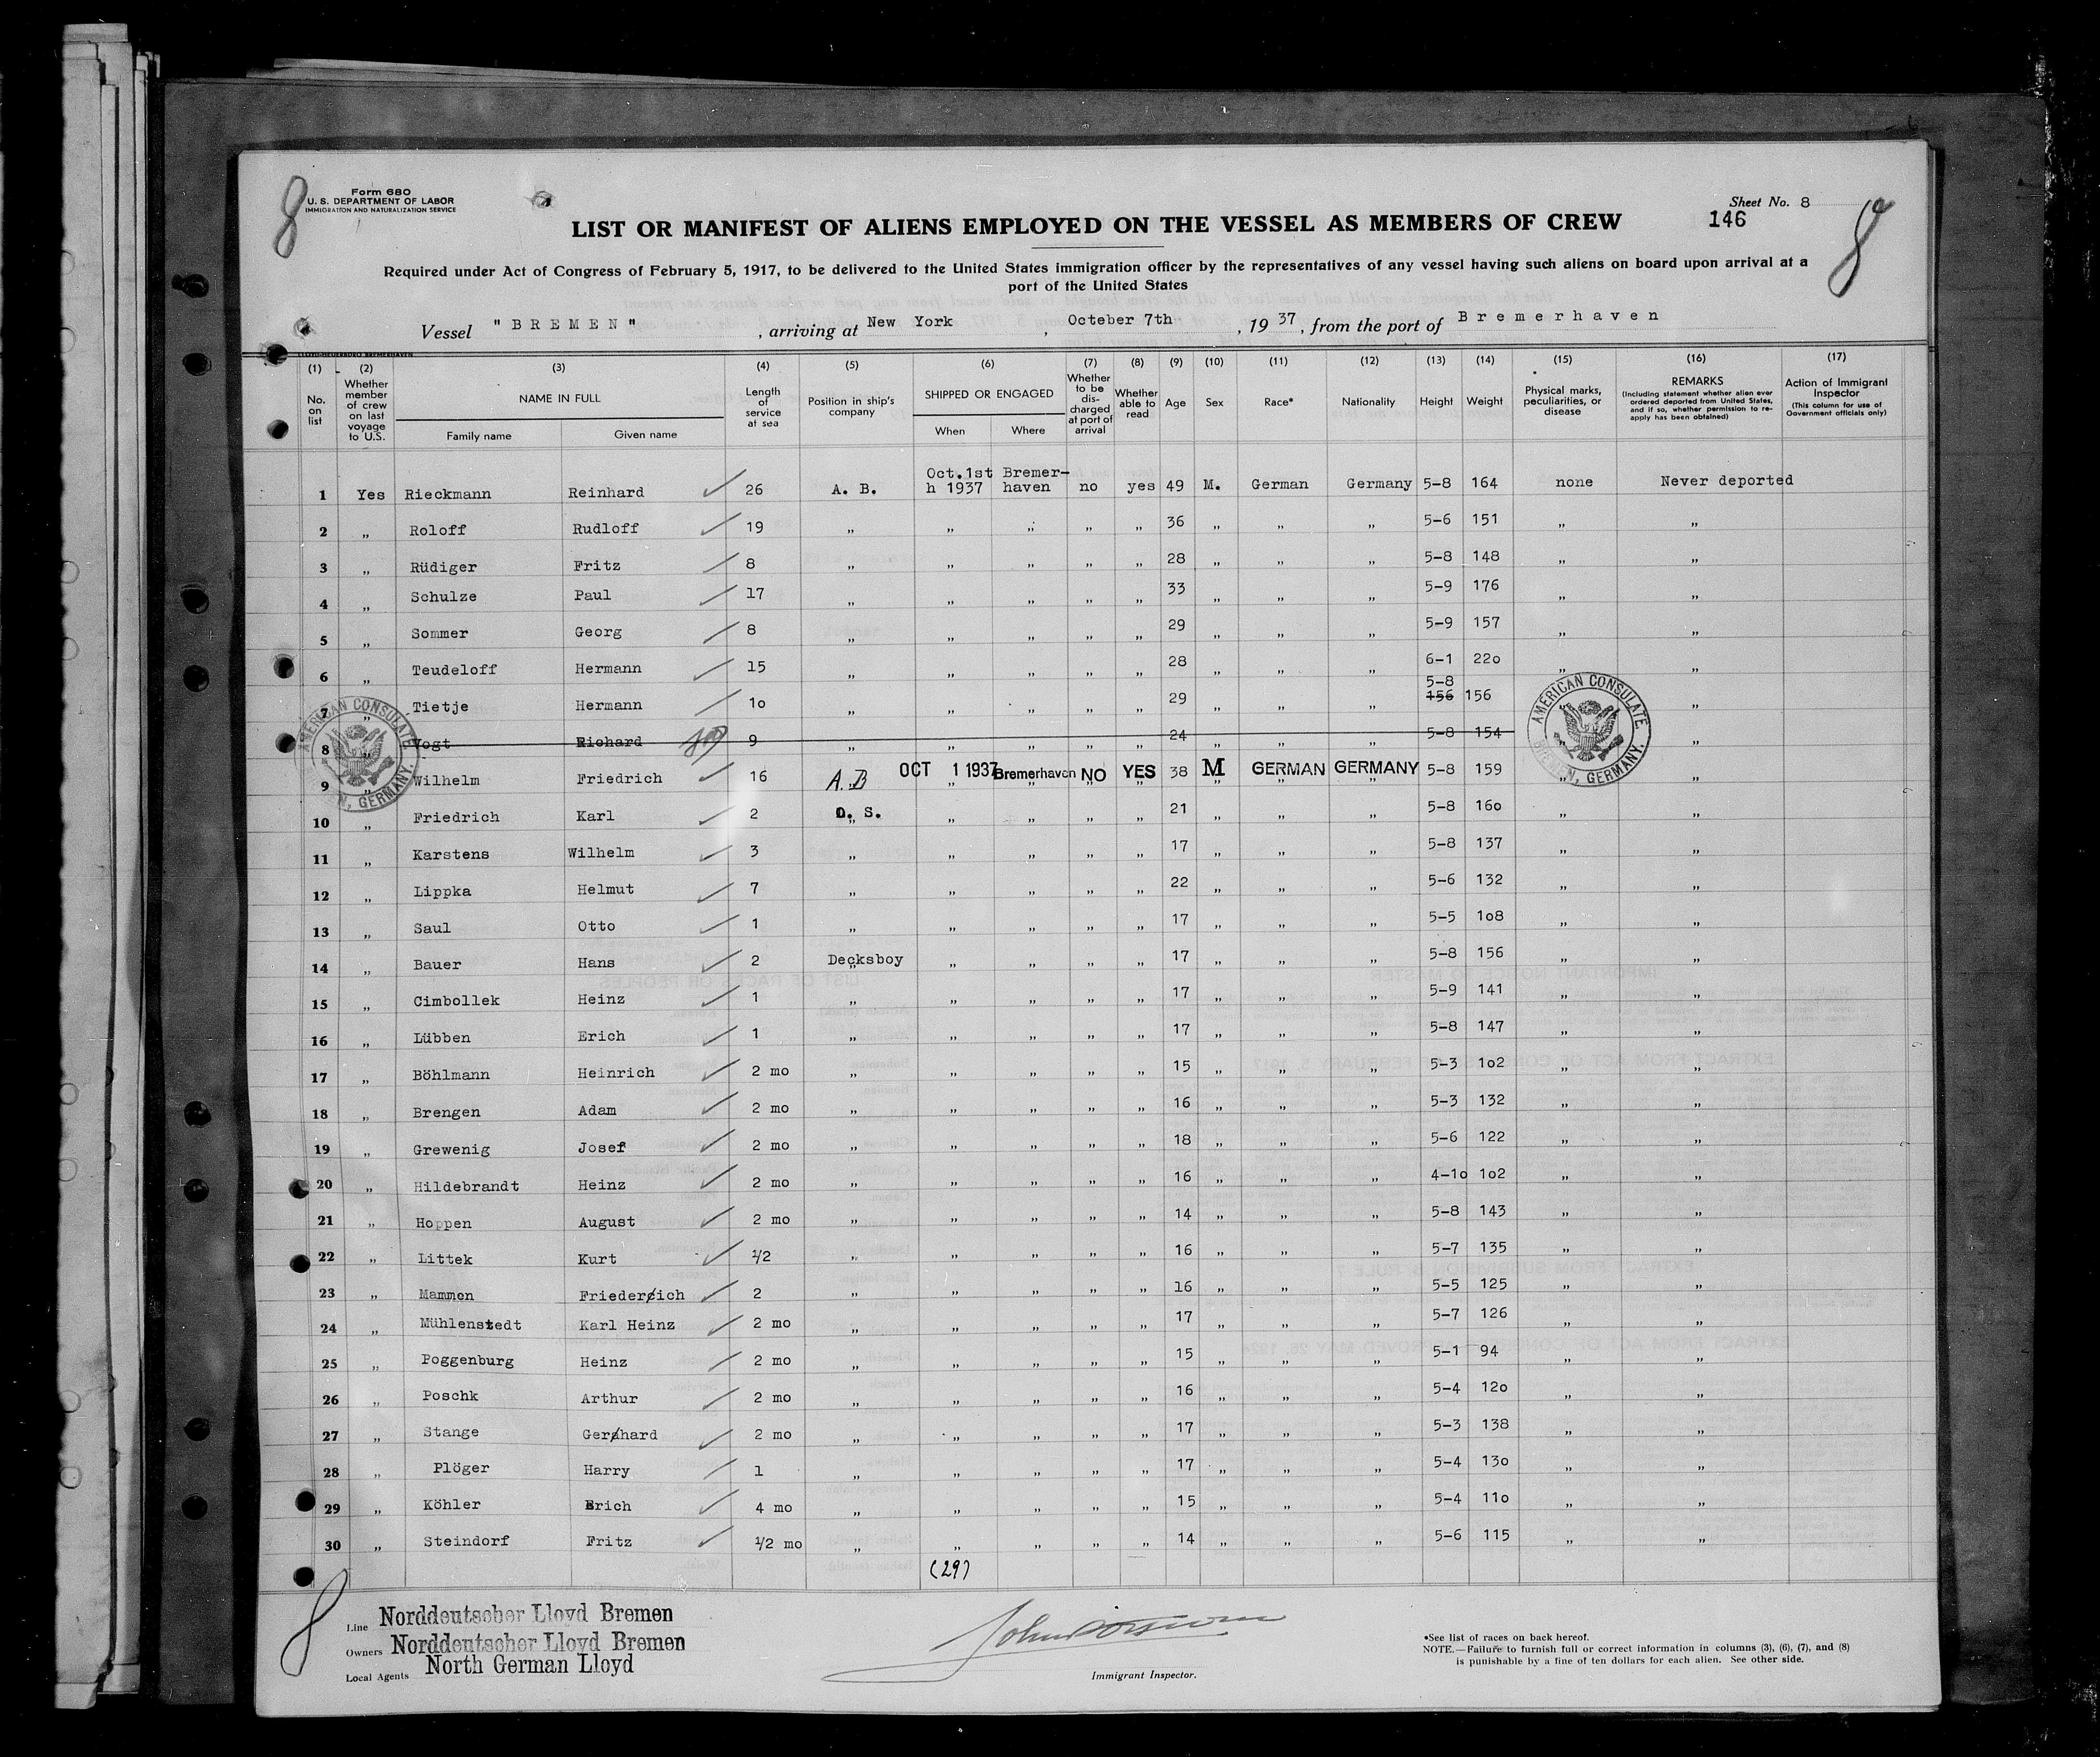 Form 680
U. S. DEPARTMENT OF LABOR
IMMIGRATION AND NATURALIZATION SERVICE
8
Sheet No. 8
146
8
LIST OR MANIFEST OF ALIENS EMPLOYED ON THE VESSEL AS MEMBERS OF CREW
Required under Act of Congress of February 5, 1917, to be delivered to the United States immigration officer by the representatives of any vessel having such aliens on board upon arrival at a
port of the United States
Vessel "BREMEN", arriving at New York, Octeber 7th, 1937, from the port of Bremerhaven
(1) (2) (3) (4) (5) (6) (7) (8) (9) (10) (11) (12) (13) (14) (15) (16) (17)
No. on list
Whether member of crew on last voyage to U.S.
NAME IN FULL
Family name Given name
Length of service at sea
Position in ship's company
SHIPPED OR ENGAGED
When Where
Whether to be discharged at port of arrival
Whether able to read
Age Sex Race* Nationality Height Weight
Physical marks, peculiarities, or disease
REMARKS
(Including statement whether alien ever ordered deported from United States, and if so, whether permission to reapply has been obtained)
Action of Immigrant Inspector
(This column for use of Government officials only)
1 Yes Rieckmann Reinhard 26 A. B. Oct.1st h 1937 Bremer-haven no yes 49 M. German Germany 5-8 164 none Never deported
2 „ Roloff Rudloff 19 „ „ „ „ „ 36 „ „ „ 5-6 151 „ „
3 „ Rüdiger Fritz 8 „ „ „ „ „ 28 „ „ „ 5-8 148 „ „
4 „ Schulze Paul 17 „ „ „ „ „ 33 „ „ „ 5-9 176 „ „
5 „ Sommer Georg 8 „ „ „ „ „ 29 „ „ „ 5-9 157 „ „
6 „ Teudeloff Hermann 15 „ „ „ „ „ 28 „ „ „ 6-1 22o „ „
7 „ Tietje Hermann 1o „ „ „ „ „ 29 „ „ „ 5-8 156 156 „ „
8 „ Vogt Richard 9 „ „ „ „ „ 24 „ „ „ 5-8 154 „ „
9 „ Wilhelm Friedrich 16 A.B OCT 1 1937 Bremerhaven NO YES 38 M GERMAN GERMANY 5-8 159 „ „
10 „ Friedrich Karl 2 O. S. „ „ „ „ 21 „ „ „ 5-8 16o „ „
11 „ Karstens Wilhelm 3 „ „ „ „ „ 17 „ „ „ 5-8 137 „ „
12 „ Lippka Helmut 7 „ „ „ „ „ 22 „ „ „ 5-6 132 „ „
13 „ Saul Otto 1 „ „ „ „ „ 17 „ „ „ 5-5 1o8 „ „
14 „ Bauer Hans 2 Decksboy „ „ „ „ 17 „ „ „ 5-8 156 „ „
15 „ Cimbollek Heinz 1 „ „ „ „ „ 17 „ „ „ 5-9 141 „ „
16 „ Lübben Erich 1 „ „ „ „ „ 17 „ „ „ 5-8 147 „ „
17 „ Böhlmann Heinrich 2 mo „ „ „ „ „ 15 „ „ „ 5-3 1o2 „ „
18 „ Brengen Adam 2 mo „ „ „ „ „ 16 „ „ „ 5-3 132 „ „
19 „ Grewenig Josef 2 mo „ „ „ „ „ 18 „ „ „ 5-6 122 „ „
20 „ Hildebrandt Heinz 2 mo „ „ „ „ „ 16 „ „ „ 4-1o 1o2 „ „
21 „ Hoppen August 2 mo „ „ „ „ „ 14 „ „ „ 5-8 143 „ „
22 „ Littek Kurt 1/2 „ „ „ „ „ 16 „ „ „ 5-7 135 „ „
23 „ Mammen Friederich 2 „ „ „ „ „ 16 „ „ „ 5-5 125 „ „
24 „ Mühlenstedt Karl Heinz 2 mo „ „ „ „ „ 17 „ „ „ 5-7 126 „ „
25 „ Poggenburg Heinz 2 mo „ „ „ „ „ 15 „ „ „ 5-1 94 „ „
26 „ Poschk Arthur 2 mo „ „ „ „ „ 16 „ „ „ 5-4 12o „ „
27 „ Stange Gerhard 2 mo „ „ „ „ „ 17 „ „ „ 5-3 138 „ „
28 „ Plöger Harry 1 „ „ „ „ „ 17 „ „ „ 5-4 13o „ „
29 „ Köhler Erich 4 mo „ „ „ „ „ 15 „ „ „ 5-4 11o „ „
30 „ Steindorf Fritz 1/2 mo „ „ „ „ „ 14 „ „ „ 5-6 115 „ „
(29)
AMERICAN CONSULATE
BREMEN, GERMANY.
AMERICAN CONSULATE
BREMEN, GERMANY.
8
Line Norddeutscher Lloyd Bremen
Owners Norddeutscher Lloyd Bremen
Local Agents North German Lloyd
Immigrant Inspector.
*See list of races on back hereof.
NOTE.—Failure to furnish full or correct information in columns (3), (6), (7), and (8)
is punishable by a fine of ten dollars for each alien. See other side.